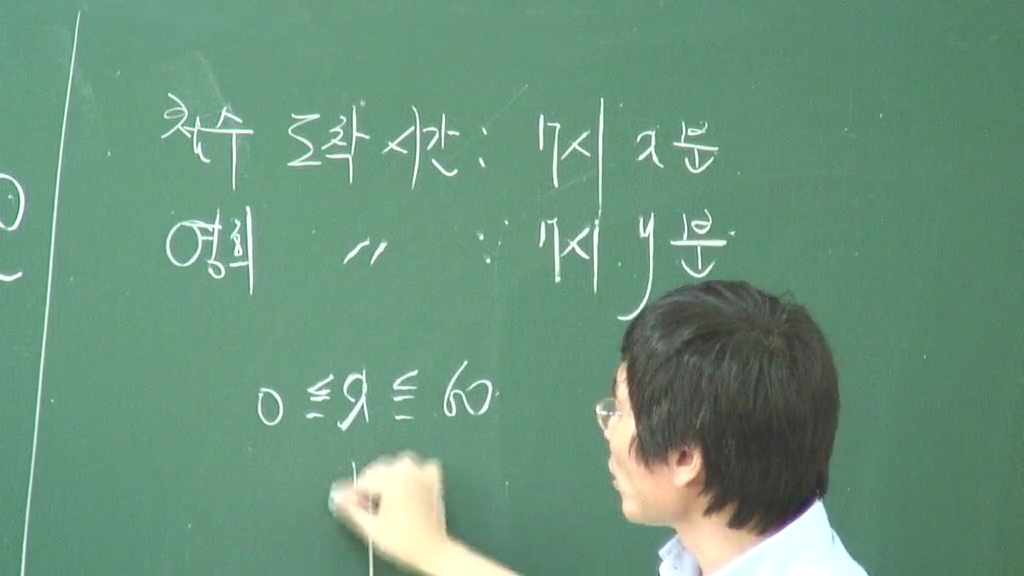 철수 도착 시간 : 7시 x분
영희 〃 : 7시 y분
0 ≦ x ≦ 60